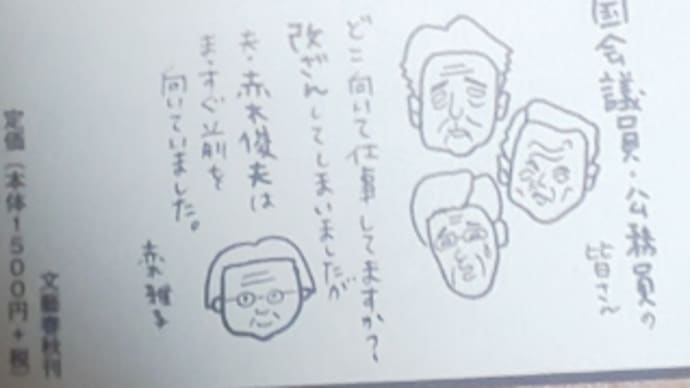 国会議員・公務員の
皆さん
どこ向いて仕事してますか?
改ざんしてしまいましたが
夫・赤木俊夫は
まっすぐ前を
向いていました。
赤木雅子
定価(本体1500円+税)
文藝春秋刊